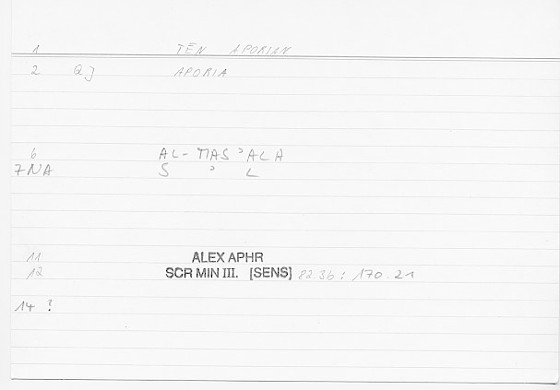 1 TĒN APORIAN
2 QJ APORIA
6 AL-MAS'ALA
7NA S ' L
11 ALEX APHR
12 SCR MIN III. [SENS] 82.36 : 170.21
14 !